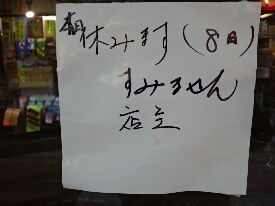 本日休みます(8日)
すみません
店主